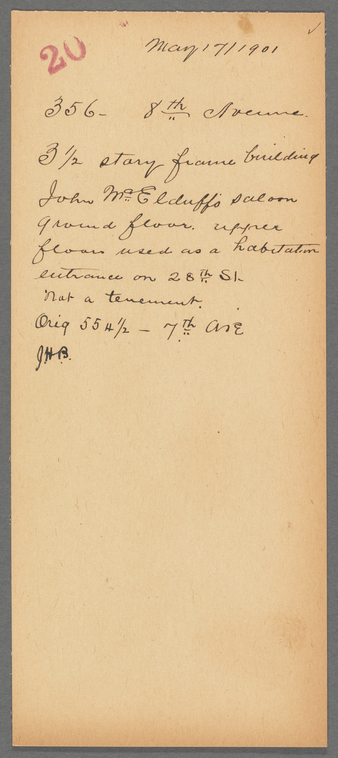 20
May 17/1901
356- 8th Avenue.
3 1/2 story frame building
John McElduff's saloon
ground floor. upper
floors used as a habitation
entrance on 28th St.
Not a tenement.
Orig 554 1/2 - 7th Ave
JHB.